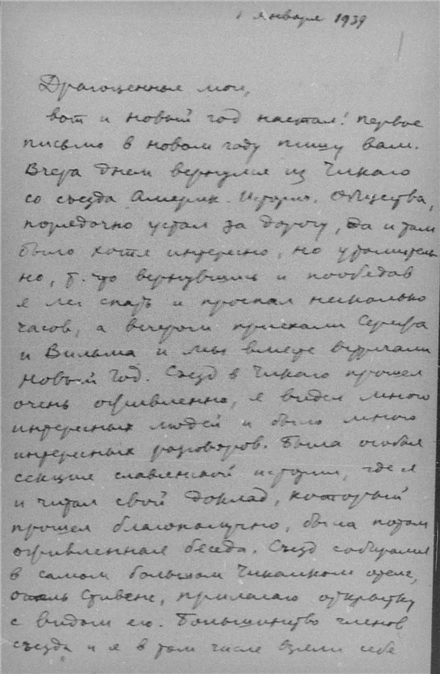 1 января 1939
Драгоценные мои,
вот и новый год настал! Первое
письмо в новом году пишу вам.
Вчера днем вернулся из Чикаго
со съезда Америк. Истории. Общества,
порядочно устал за дорогу, да и там
было хотя интересно, но утомитель
но, т. что вернувшись и пообедав
я лег спать и проспал несколько
часов, а вечером приехали Сережа
и Вильма и мы вместе встречали
новый год. Съезд в Чикаго прошел
очень оживленно, я видел много
интересных людей и было много
интересных разговоров. Была особая
секция славянской истории, где я
и читал свой доклад, который
прошел благополучно, была потом
оживленная беседа. Съезд собирался
в самом большом Чикагском отеле,
отель Стивенс, прилагаю открытку
с видом его. Большинство членов
съезда и я в том числе взяли себе